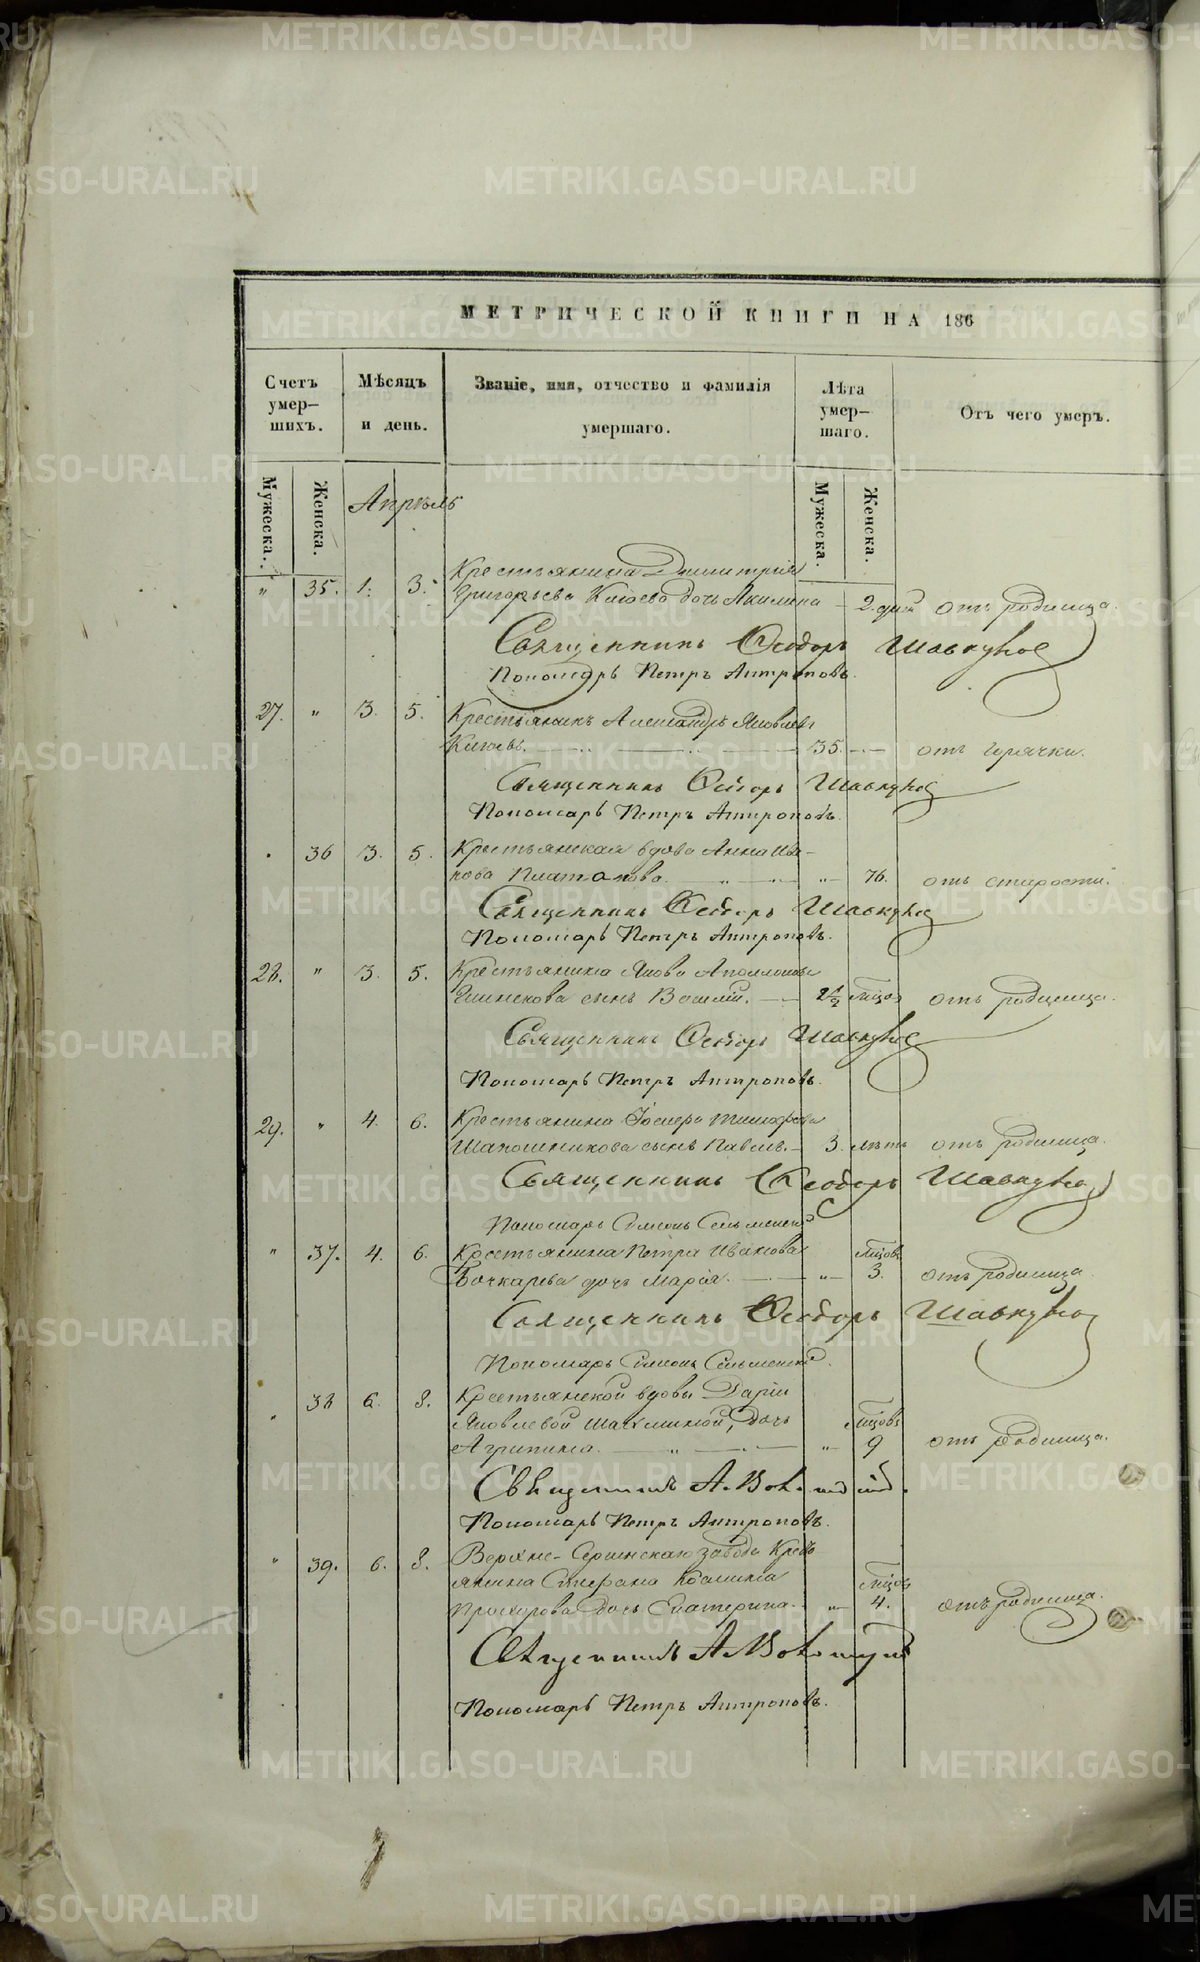 МЕТРИЧЕСКОЙ КНИГИ НА 186
Счетъ умер—шихъ.
Мѣсяцъ и день.
Званіе, имя, отчество и фамилія умершаго.
Лѣта умер—шаго.
Отъ чего умеръ.
Мужеска.
Женска.
Мужеска.
Женска.
Апрѣль
Крестьянина Димитрія
" 35. 1. 3. Григорьева дочь Акилина — 2 дней отъ родимца.
Священникъ Ѳеодоръ Шавкуновъ
Пономарь Петръ Антроповъ.
27. " 3. 5. Крестьянинъ Александръ Яковлевъ
35. — отъ горячки.
Священникъ Ѳеодоръ Шавкуновъ
Пономарь Петръ Антроповъ.
36 3. 5. Крестьянская вдова Анна Ива-
нова Платонова. " 76. отъ старости.
Священникъ Ѳеодоръ Шавкуновъ
Пономарь Петръ Антроповъ.
28. " 3. 5. Крестьянина Якова Аполлонова
сынъ Василій. — 2½ мѣсяц отъ родимца.
Священникъ Ѳеодоръ Шавкуновъ
Пономарь Петръ Антроповъ.
29. " 4. 6. Крестьянина Тимофеева
Шапошникова сынъ Павелъ. — 3. лѣтъ отъ родимца.
Священникъ Ѳеодоръ Шавкуновъ
Пономарь Симеонъ
" 37. 4. 6. Крестьянина Петра Иванова мѣсяцовъ
Бочкарева дочь Марія. — " 3. отъ родимца.
Священникъ Ѳеодоръ Шавкуновъ
Пономарь Симеонъ
38 6. 8. Крестьянской вдовы Даріи
Яковлевой дочь мѣсяцовъ
Агрипина. — " — " 9 отъ родимца.
Священникъ А.
Пономарь Петръ Антроповъ.
" 39. 6. 8. Верхне-Сергинскаго завода Кресть-
янина Стефана Космина мѣсяцовъ
Прохорова дочь Екатерина. — " 4. отъ родимца.
Священникъ А.
Пономарь Петръ Антроповъ.
METRIKI.GASO-URAL.RU